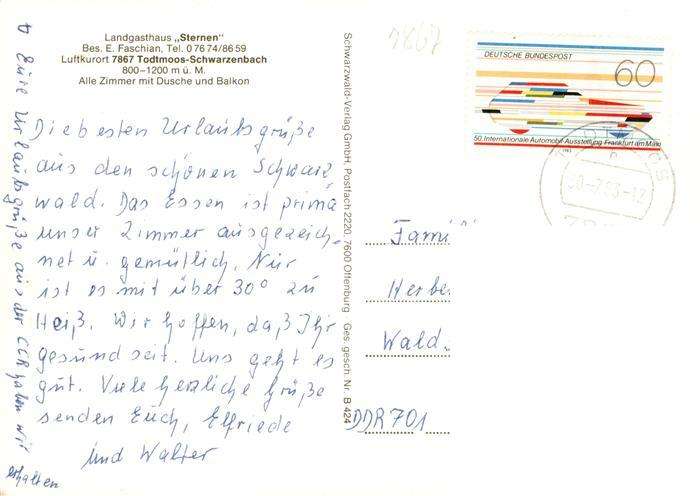 Landgasthaus „Sternen"
Bes. E. Faschian, Tel. 0 76 74/86 59
Luftkurort 7867 Todtmoos-Schwarzenbach
800–1200 m ü. M.
Alle Zimmer mit Dusche und Balkon
Die besten Urlaubsgrüße
aus den schönen Schwarz
wald. Das Essen ist prima
unser Zimmer ausgezeich-
net u. gemütlich. Nur
ist es mit über 30° zu
Heiß. Wir hoffen, daß Ihr
gesund seit. Uns geht es
gut. Viele herzliche Grüße
senden Euch, Elfriede
und Walter
Eure Urlaubsgrüße aus der CCR haben wir
erhalten
Schwarzwald-Verlag GmbH, Postfach 2220, 7600 Offenburg Ges. gesch. Nr. B 424
1867
DEUTSCHE BUNDESPOST
60
50. Internationale Automobil-Ausstellung Frankfurt am Main
1983
Fami
Herbe
Wald
DDR 701